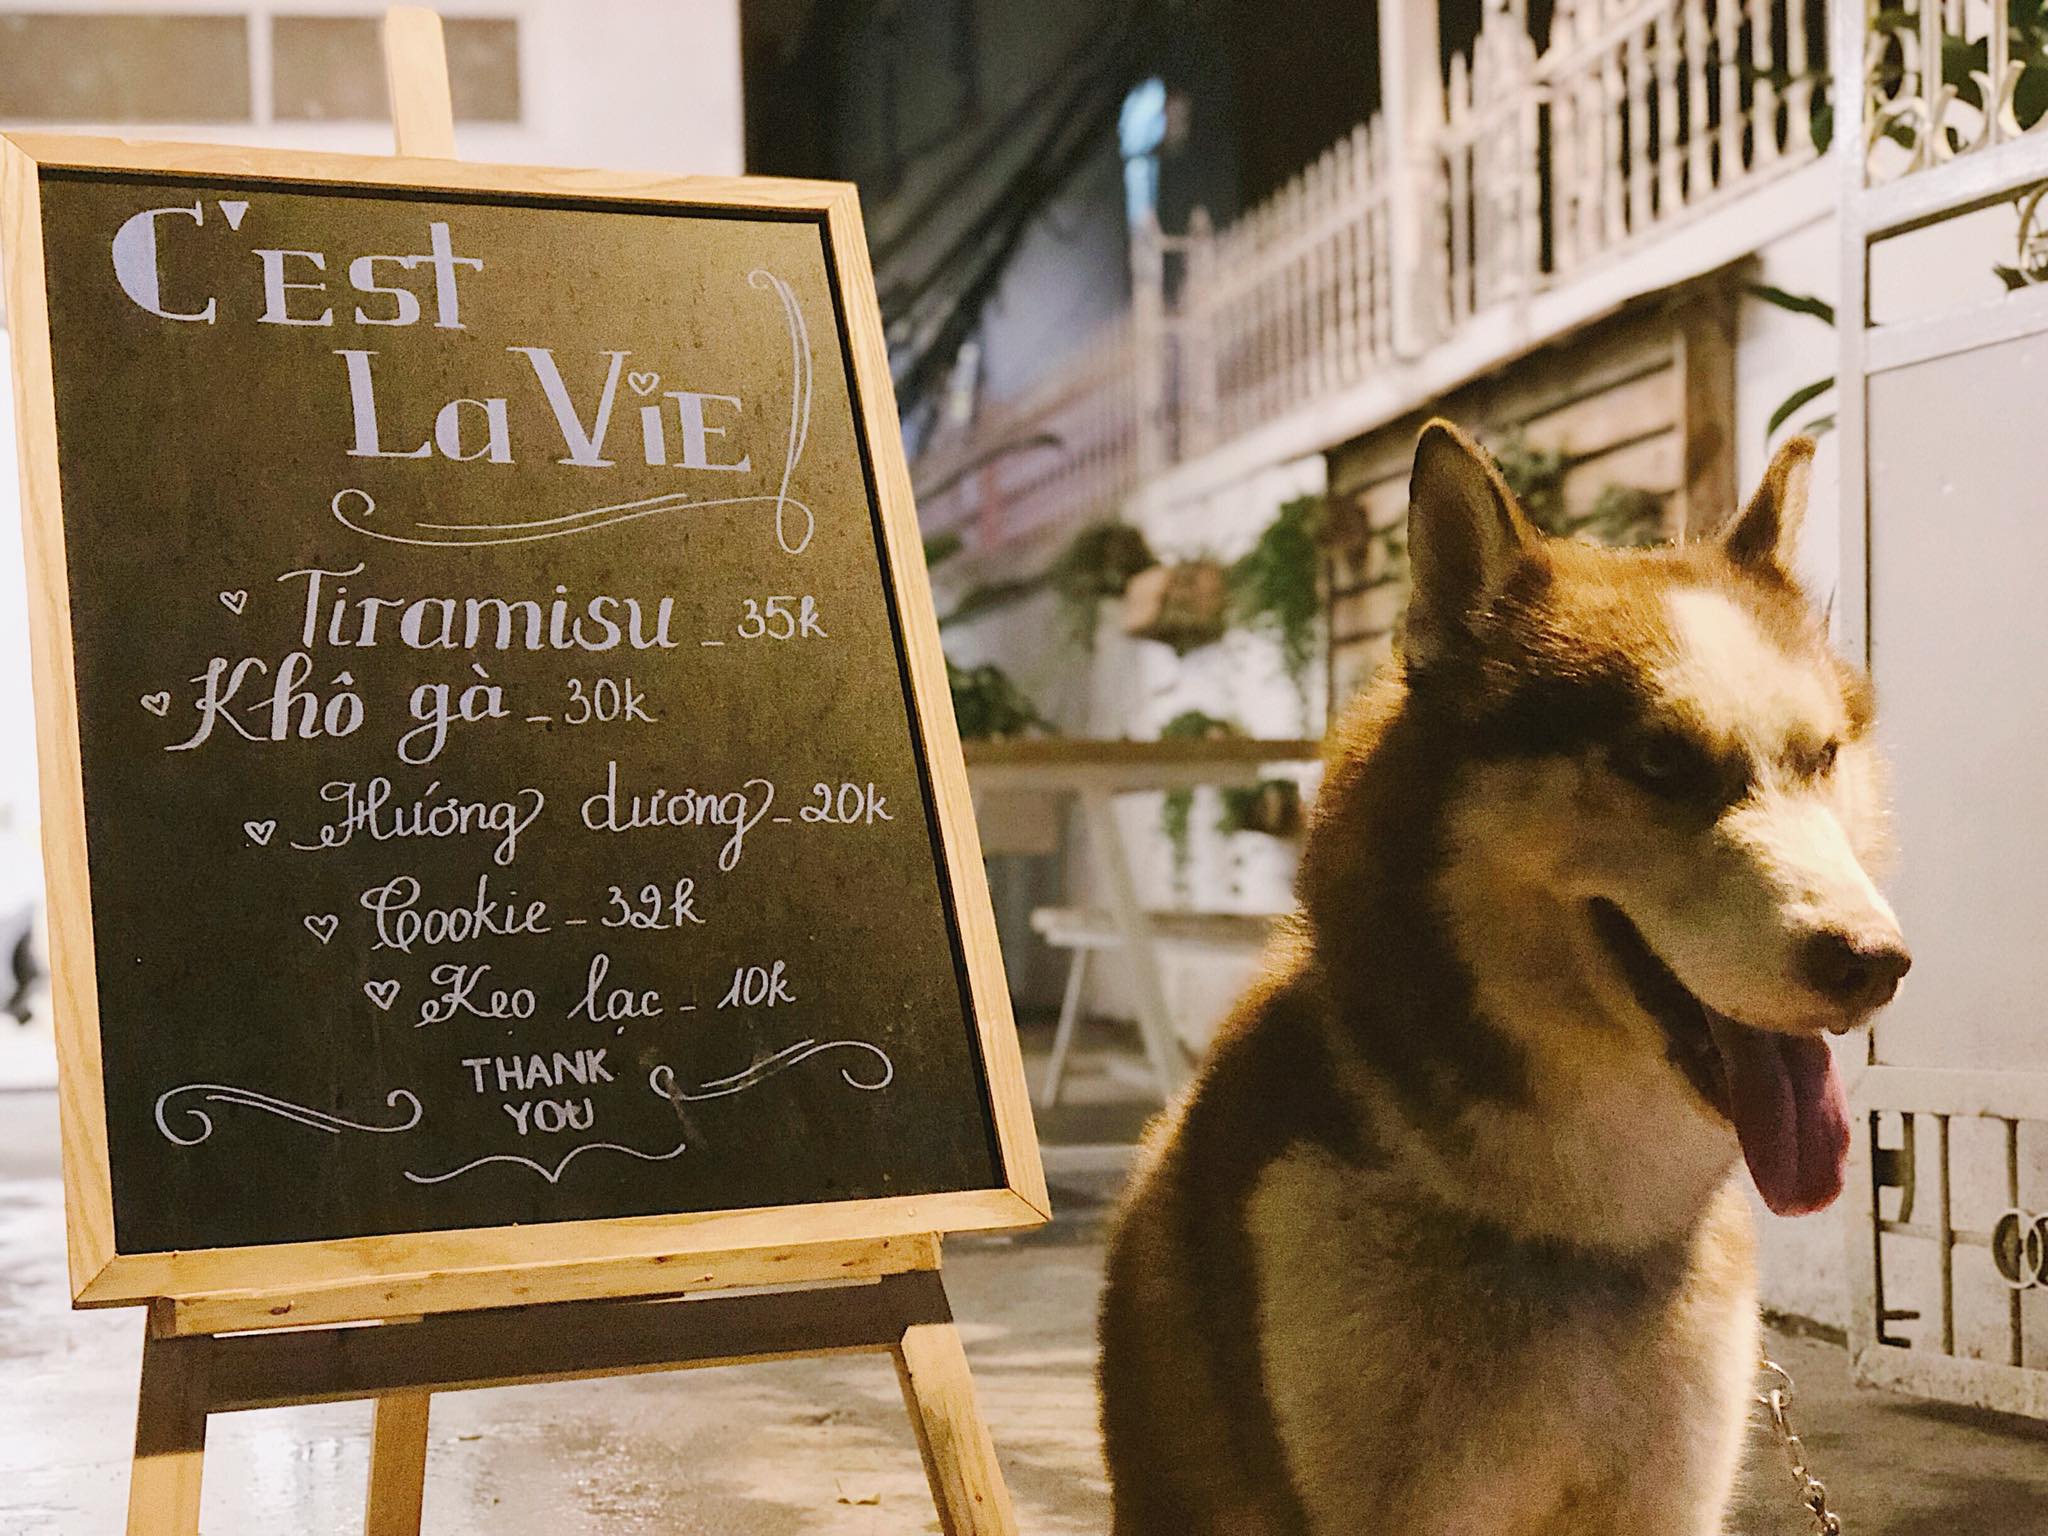 C'EST
La ViE
Tiramisu _ 35k
Khô gà _ 30k
Hướng dương _ 20k
Cookie _ 32k
Kẹo lạc _ 10k
THANK
YOU